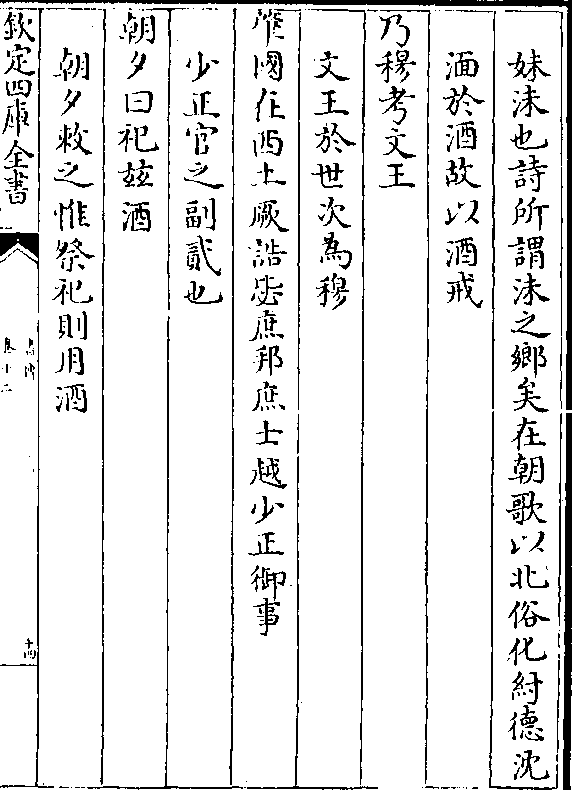 妹沬也詩所謂沬之鄉矣在朝歌以北俗化紂德沈
湎於酒故以酒戒
乃穆考文王
文王於世次為穆
肇國在西土厥誥毖庶邦庶士越少正御事
少正官之副貳也
朝夕曰祀兹酒
朝夕敕之惟祭祀則用酒
欽定四庫全書
十四